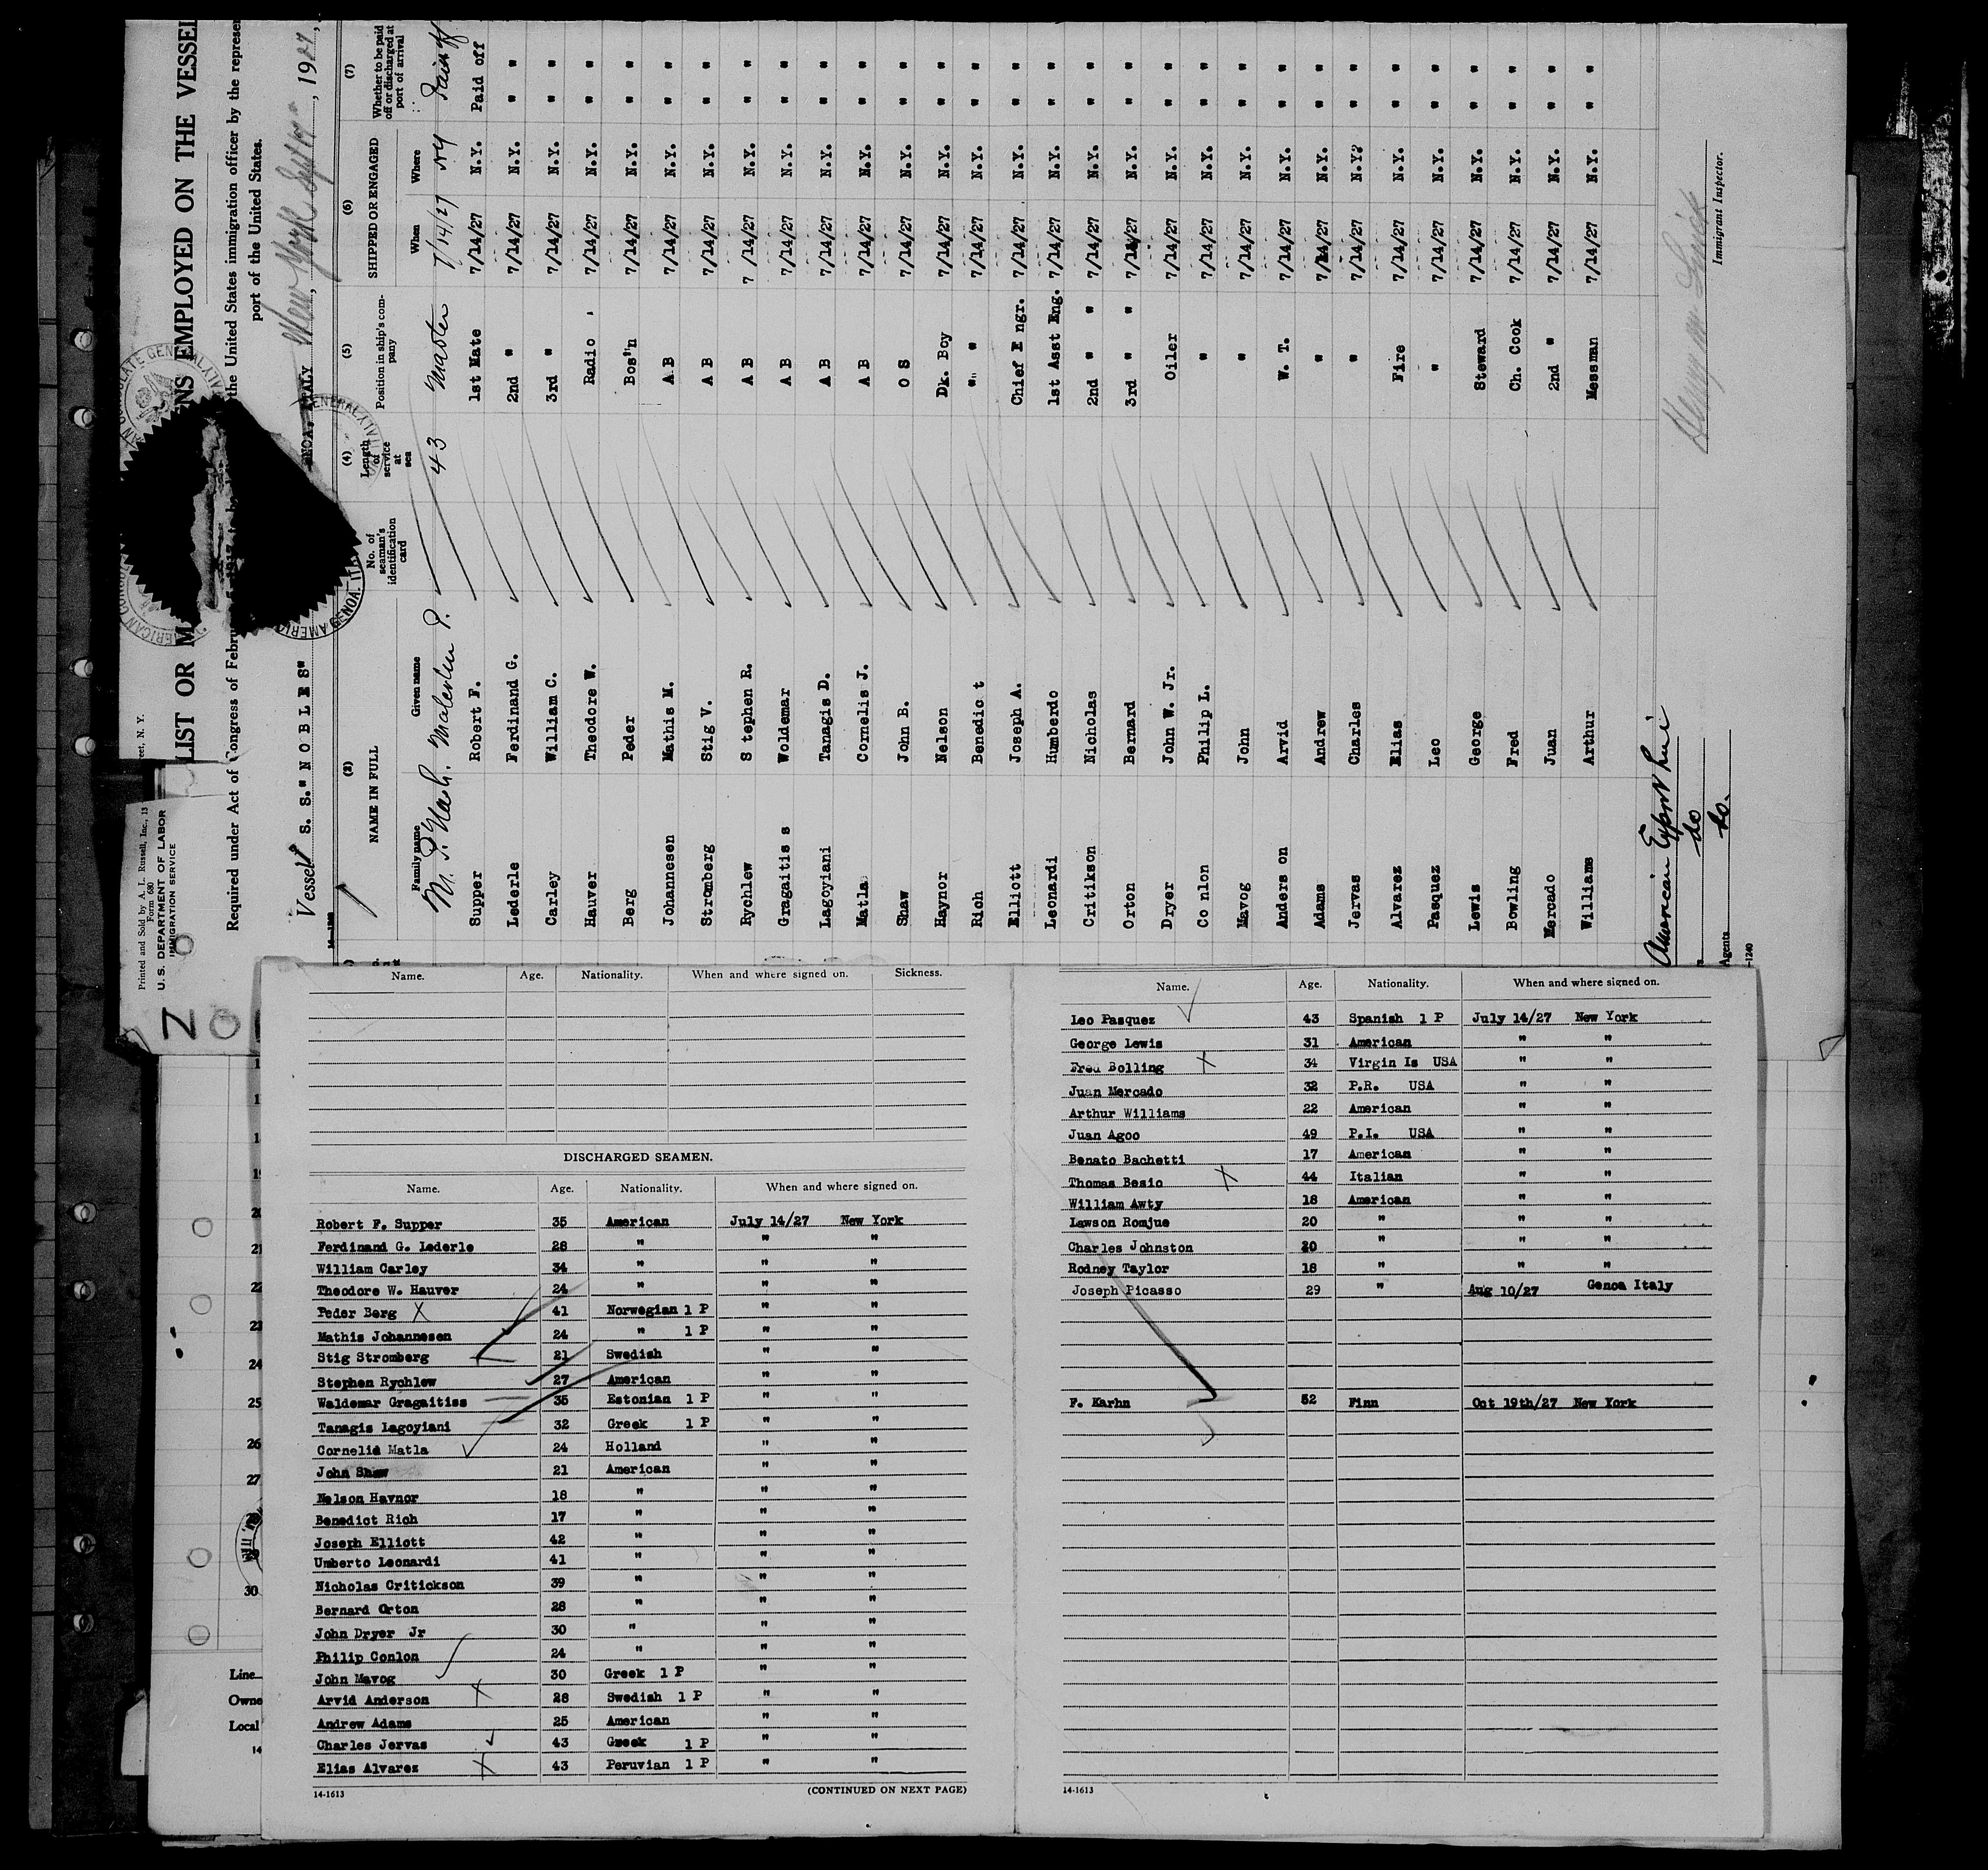 eet, N. Y.
Printed and Sold by A. L. Russell, Inc., 13
Form 680
U. S. DEPARTMENT OF LABOR
IMMIGRATION SERVICE
LIST OR M NS EMPLOYED ON THE VESSEL
Required under Act of Congress of Febru the United States immigration officer by the represen
port of the United States.
Vessel S. S. "NOBLES" GENOA, ITALY New York Sept 17, 1927,
(2) (4) (5) (6) (7)
NAME IN FULL No. of seaman's identification card Length of service at sea Position in ship's company SHIPPED OR ENGAGED Whether to be paid off or discharged at port of arrival
Family name Given name When Where
43 Master 7/14/27 NY Paid off
Supper Robert F. 1st Mate 7/14/27 N.Y. Paid off
Lederle Ferdinand G. 2nd " 7/14/27 N.Y. " "
Carley William C. 3rd " 7/14/27 N.Y. " "
Hauver Theodore W. Radio 7/14/27 N.Y. " "
Berg Peder Bos"n 7/14/27 N.Y. " "
Johannesen Mathis M. A B 7/14/27 N.Y. " "
Stromberg Stig V. A B 7/14/27 N.Y. " "
Rychlew S tephen R. A B 7 /14/27 N.Y. " "
Gragaitis s Woldemar A B 7/14/27 N.Y. " "
Lagoyiani Tanagis D. A B 7/14/27 N.Y. " "
Matla Cornelis J. A B 7/14/27 N.Y. " "
Shaw John B. O S 7/14/27 N.Y. " "
Haynor Nelson Dk. Boy 7/14/27 N.Y. " "
Rich Benedic t " " 7/14/27 N.Y. " "
Elliott Joseph A. Chief E ngr. 7/14/27 N.Y. " "
Leonardi Humberdo 1st Asst Eng. 7/14/27 N.Y. " "
Critikson Nicholas 2nd " " 7/14/27 N.Y. " "
Orton Bernard 3rd " " 7/14/27 N.Y. " "
Dryer John W. Jr. Oiler 7/14/27 N.Y. " "
Co nlon Philip L. " 7/14/27 N.Y. " "
Mavog John " 7/14/27 N.Y. " "
Anders on Arvid W. T. 7/14/27 N.Y. " "
Adams Andrew " 7/14/27 N.Y. " "
Jervas Charles " 7/14/27 N.Y? " "
Alvarez Elias Fire 7/14/27 N.Y. " "
Pasquez Leo " 7/14/27 N.Y. " "
Lewis George Steward 7/14/27 N.Y. " "
Bowling Fred Ch. Cook 7/14/27 N.Y. " "
Mercado Juan 2nd " 7/14/27 N.Y. " "
Williams Arthur Messman 7/14/27 N.Y. " "
American Export Line
do
Agents do.
Immigrant Inspector.
Name. Age. Nationality. When and where signed on. Sickness.
DISCHARGED SEAMEN.
Name. Age. Nationality. When and where signed on.
Robert F. Supper 35 American July 14/27 New York
Ferdinand G. Lederle 28 " " "
William Carley 34 " "
Theodore W. Hauver 24 " " "
Peder Berg X 41 Norwegian 1 P " "
Mathis Johannesen 24 " 1 P " "
Stig Stromberg 21 Swedish " "
Stephen Rychlew 27 American " "
Waldemar Gragaitiss 35 Estonian 1 P " "
Tanagis Lagoyiani 32 Greek 1 P " "
Cornelis Matla 24 Holland " "
John Shaw 21 American " "
Nelson Haynor 18 " " "
Benedict Rich 17 " " "
Joseph Elliott 42 " " "
Umberto Leonardi 41 " " "
Nicholas Critickson 39 " " "
Bernard Orton 28 " " "
John Dryer Jr 30 " " "
Philip Conlon 24 " " "
John Mavog 30 Greek 1 P " "
Arvid Anderson X 28 Swedish 1 P " "
Andrew Adams 25 American "
Charles Jervas 43 Greek 1 P " "
Elias Alvarez X 43 Peruvian 1 P " "
14-1613 (CONTINUED ON NEXT PAGE)
Name. Age. Nationality. When and where signed on.
Leo Pasquez 43 Spanish 1 P July 14/27 New York
George Lewis 31 American " "
Fred Bolling X 34 Virgin Is USA " "
Juan Mercado 32 P.R. USA " "
Arthur Williams 22 American " "
Juan Agoo 49 P.I. USA " "
Benato Bachetti 17 American " "
Thomas Besio X 44 Italian " "
William Awty 18 American " "
Lawson Romjue 20 " " "
Charles Johnston 20 " " "
Rodney Taylor 18 " " "
Joseph Picasso 29 " Aug 10/27 Genoa Italy
F. Karhn 52 Finn Oct 19th/27 New York
14-1613
20
21
22
23
24
25
26
27
29
30
Line
Owne
Local
14